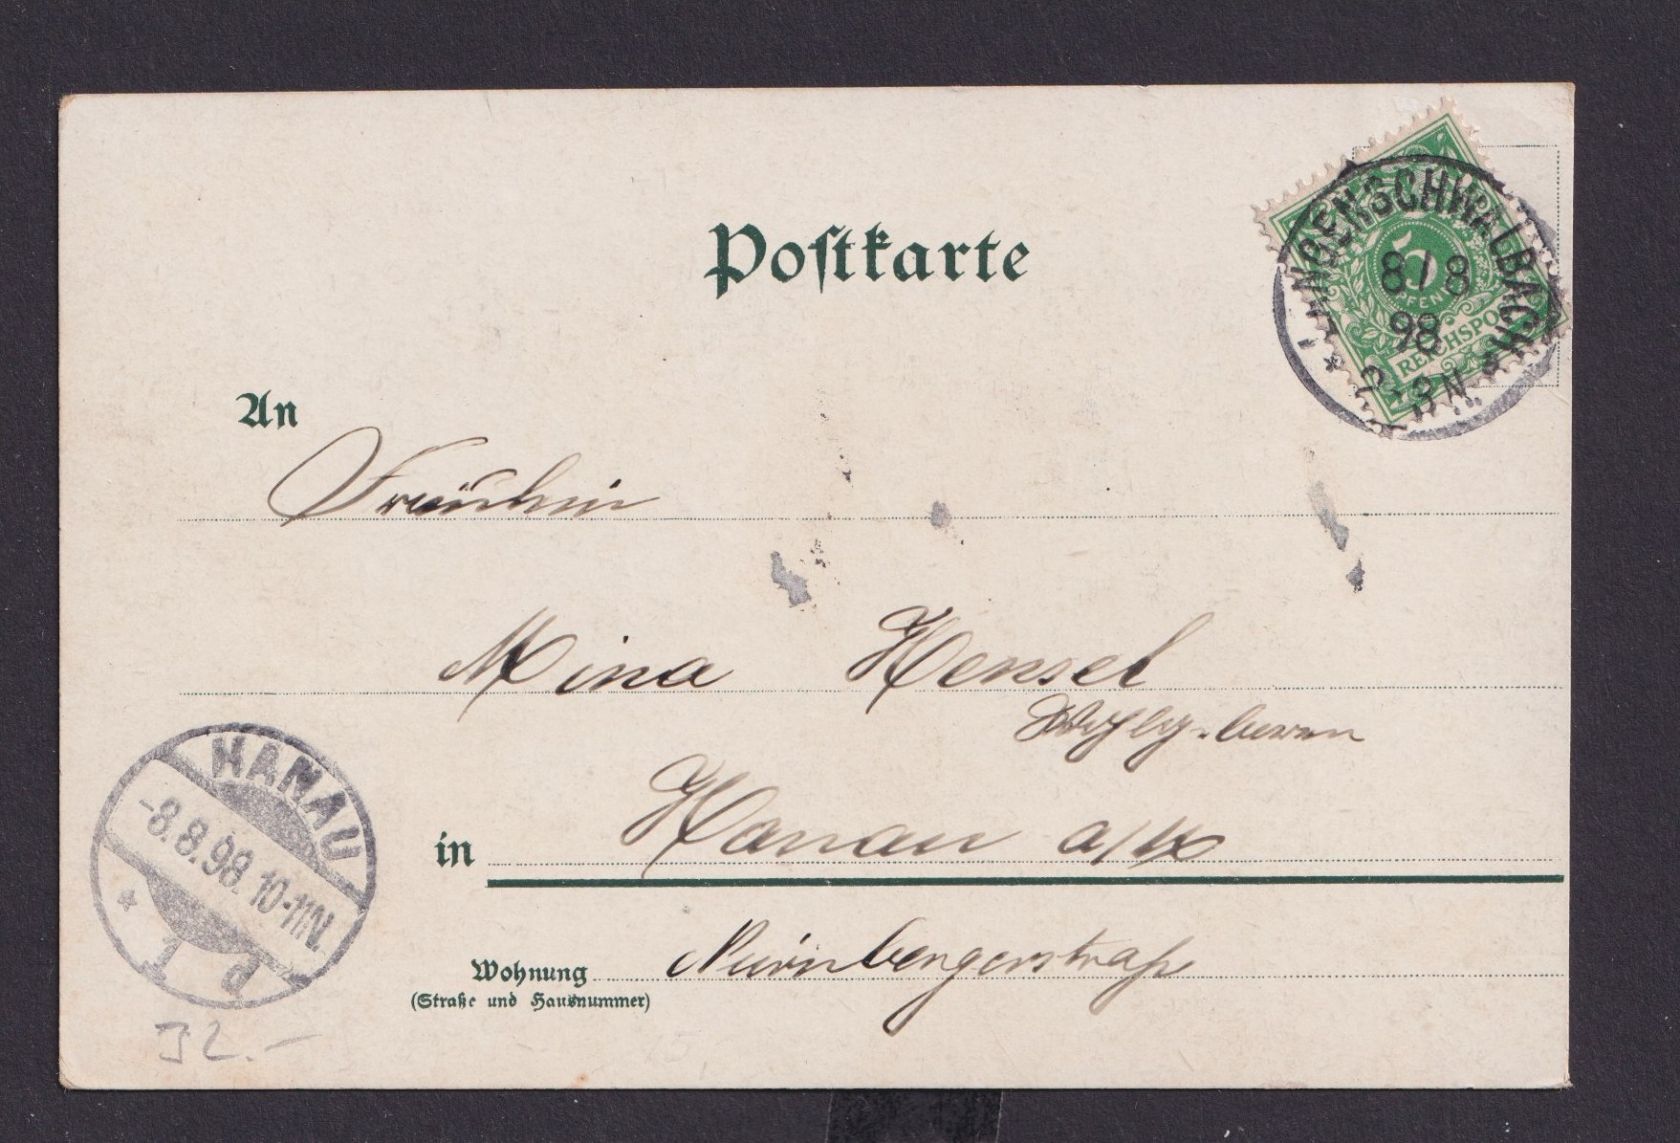 Postkarte
5
PFENNIG
REICHSPOST
* LANGENSCHWALBACH *
8/8
98
2-3N
An
Fräulein
Mina Hensel
Wohlgeboren
in Hanau a/M
Wohnung Nürnbergerstraße
(Straße und Hausnummer)
HANAU
-8.8.98.10-11N.
* P. I.
32.-